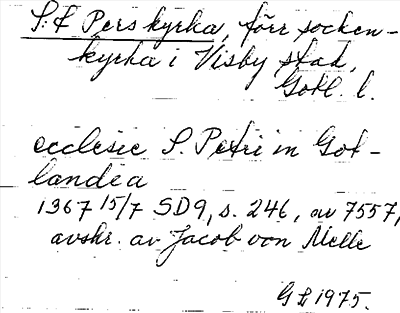 S:t Pers kyrka, förr socken-
kyrka i Visby stad,
Gotl. l.
ecclesie S. Petri in Got-
landea
1367 15/7 SD9, s. 246, nr 7557,
avskr. av Jacob von Melle
GL 1975.